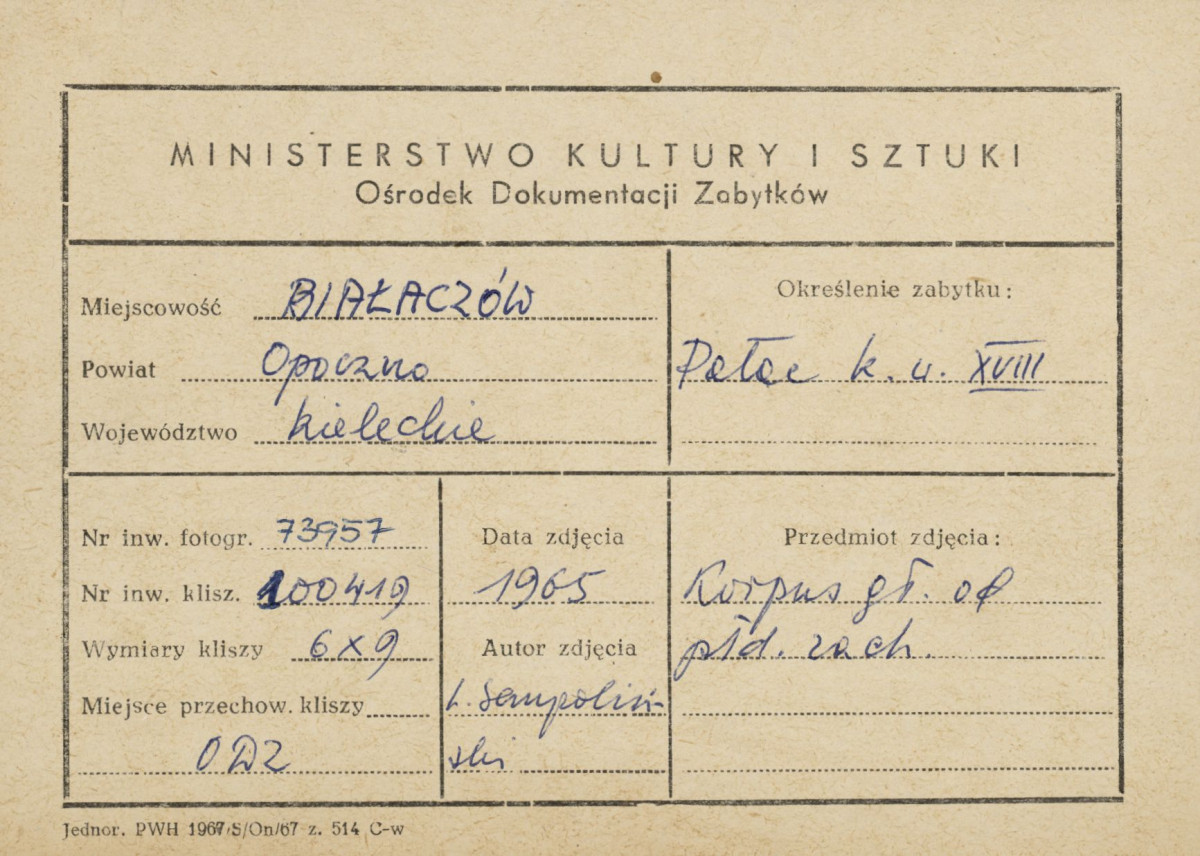 MINISTERSTWO KULTURY I SZTUKI
Ośrodek Dokumentacji Zabytków
Miejscowość BIAŁACZÓW
Powiat Opoczno
Województwo kieleckie
Określenie zabytku:
Pałac k. w. XVIII
Nr inw. fotogr. 73957
Nr inw. klisz. 100419
Wymiary kliszy 6x9
Miejsce przechow. kliszy
ODZ
Data zdjęcia
1965
Autor zdjęcia
Ł. Sempoliń-
ski
Przedmiot zdjęcia:
Korpus gł. od
płd. zach.
Jednor. PWH 1967/S/On/67 z. 514 C-w